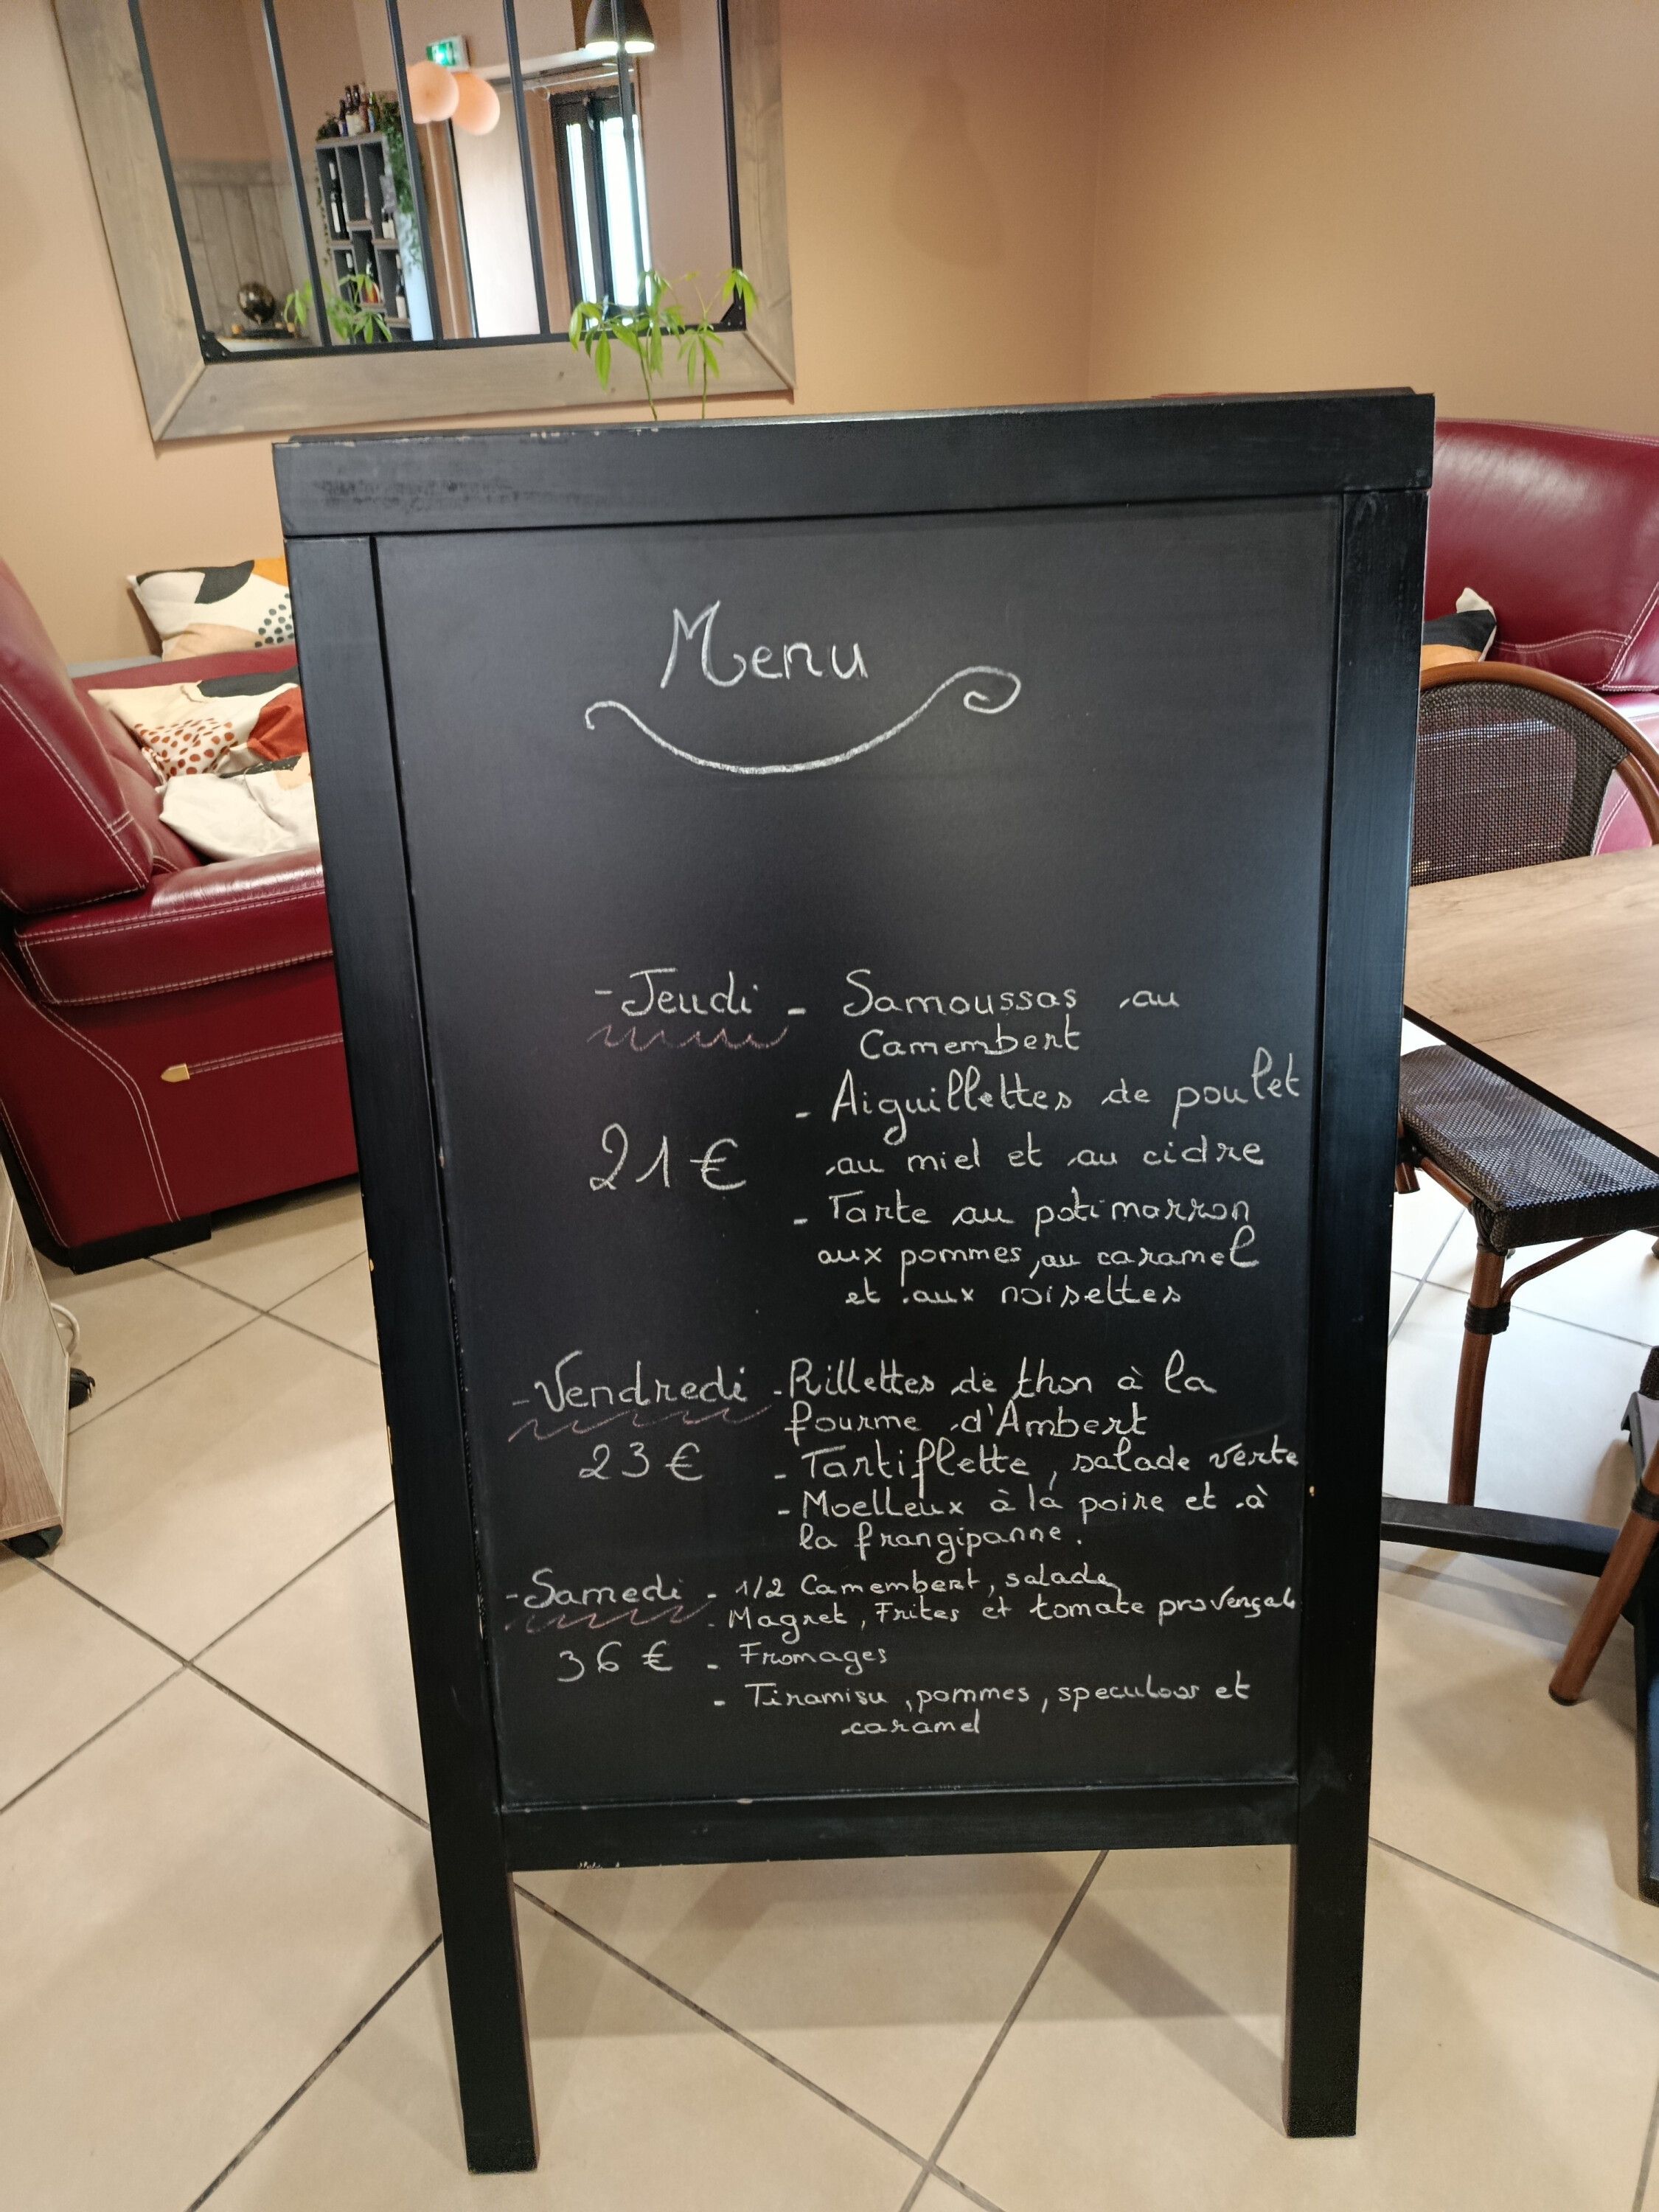 Menu
- Jeudi - Samoussas au
Camembert
- Aiguillettes de poulet
21 € au miel et au cidre
- Tarte au potimarron
aux pommes, au caramel
et aux noisettes
- Vendredi - Rillettes de thon à la
fourme d'Ambert
23 € - Tartiflette, salade verte
- Moelleux à la poire et à
la frangipanne.
- Samedi - 1/2 Camembert, salade
- Magret, Frites et tomate provençale
36 € - Fromages
- Tiramisu, pommes, speculoos et
caramel